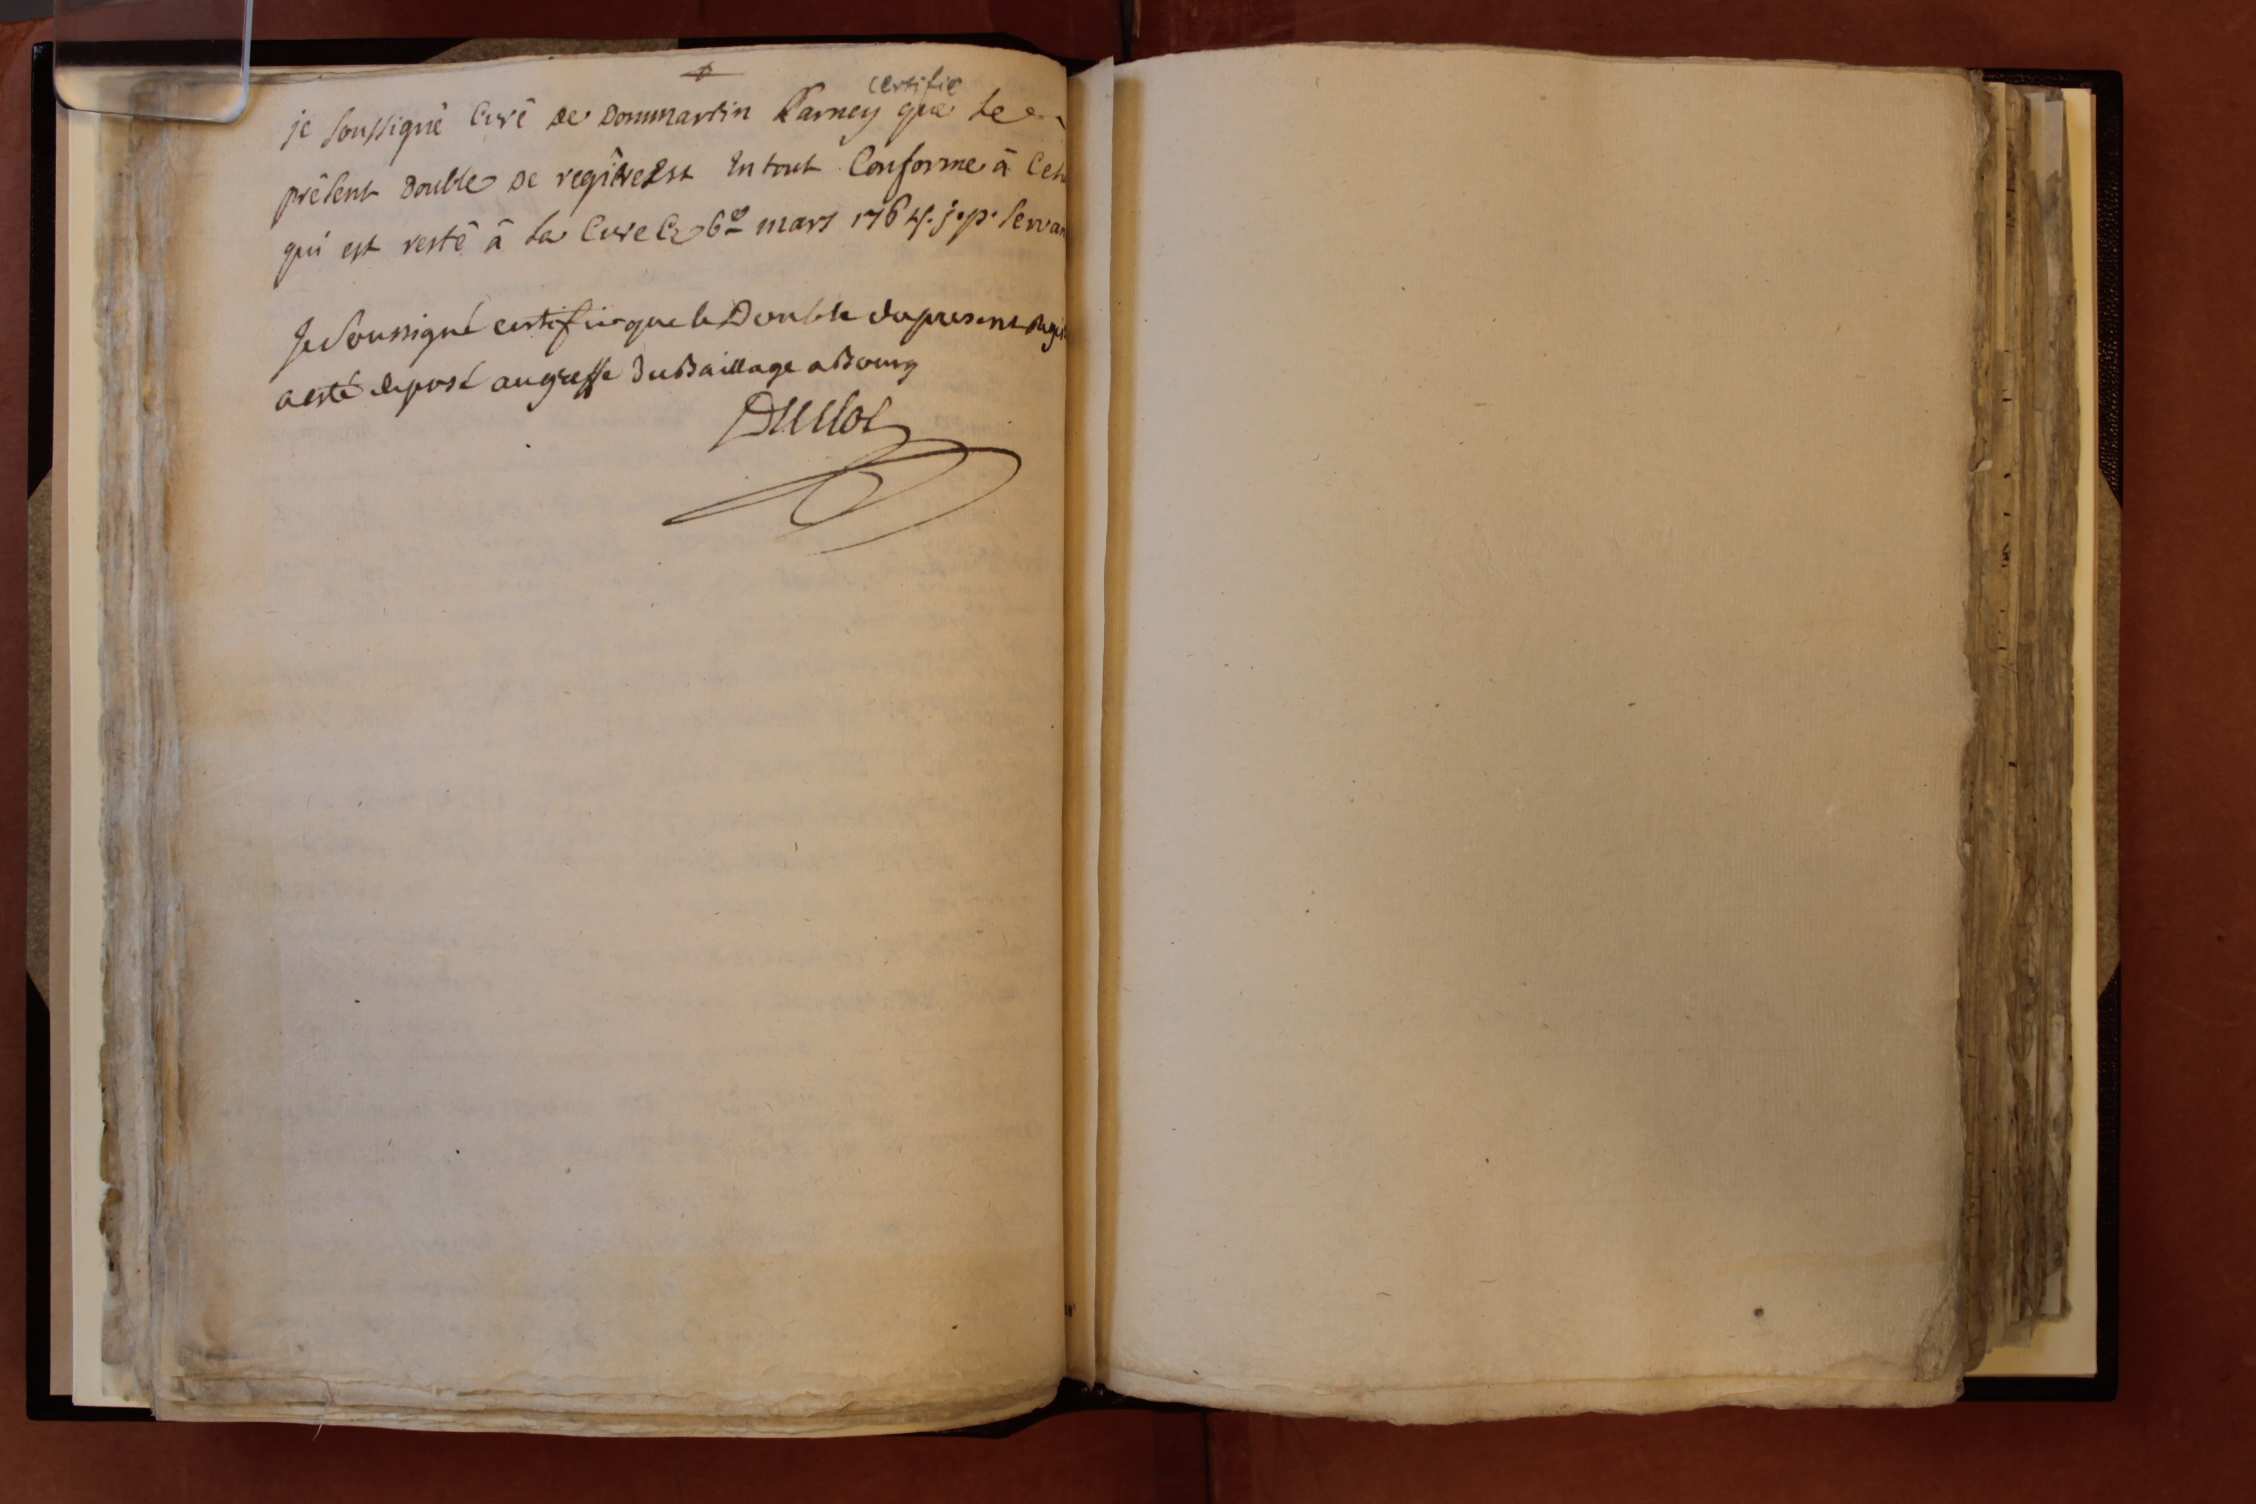 certifie
je soussigné Curé de Dommartin Larney que le
présent double de regitre Est En tout Conforme à Cel
qui est resté à la Cure Ce 6e mars 1764. j. p. servan
Je soussigné certifie que le Double du present Regis
a esté deposé au greffe du Baillage a Bourg
Duclos